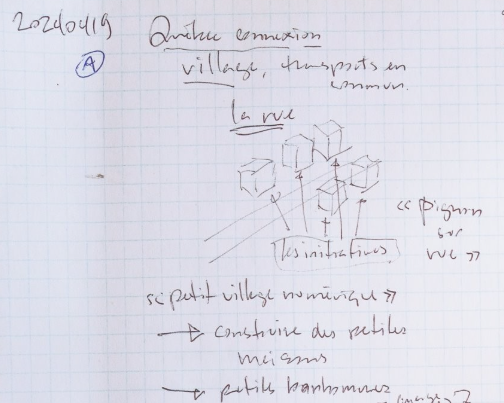 20240419
A
Québec connexion
village, transports en
commun.
la rue
les initiatives
« Pignon
sur
rue »
« petit village numérique »
→ construire des petites
maisons
→ petits bonhommes